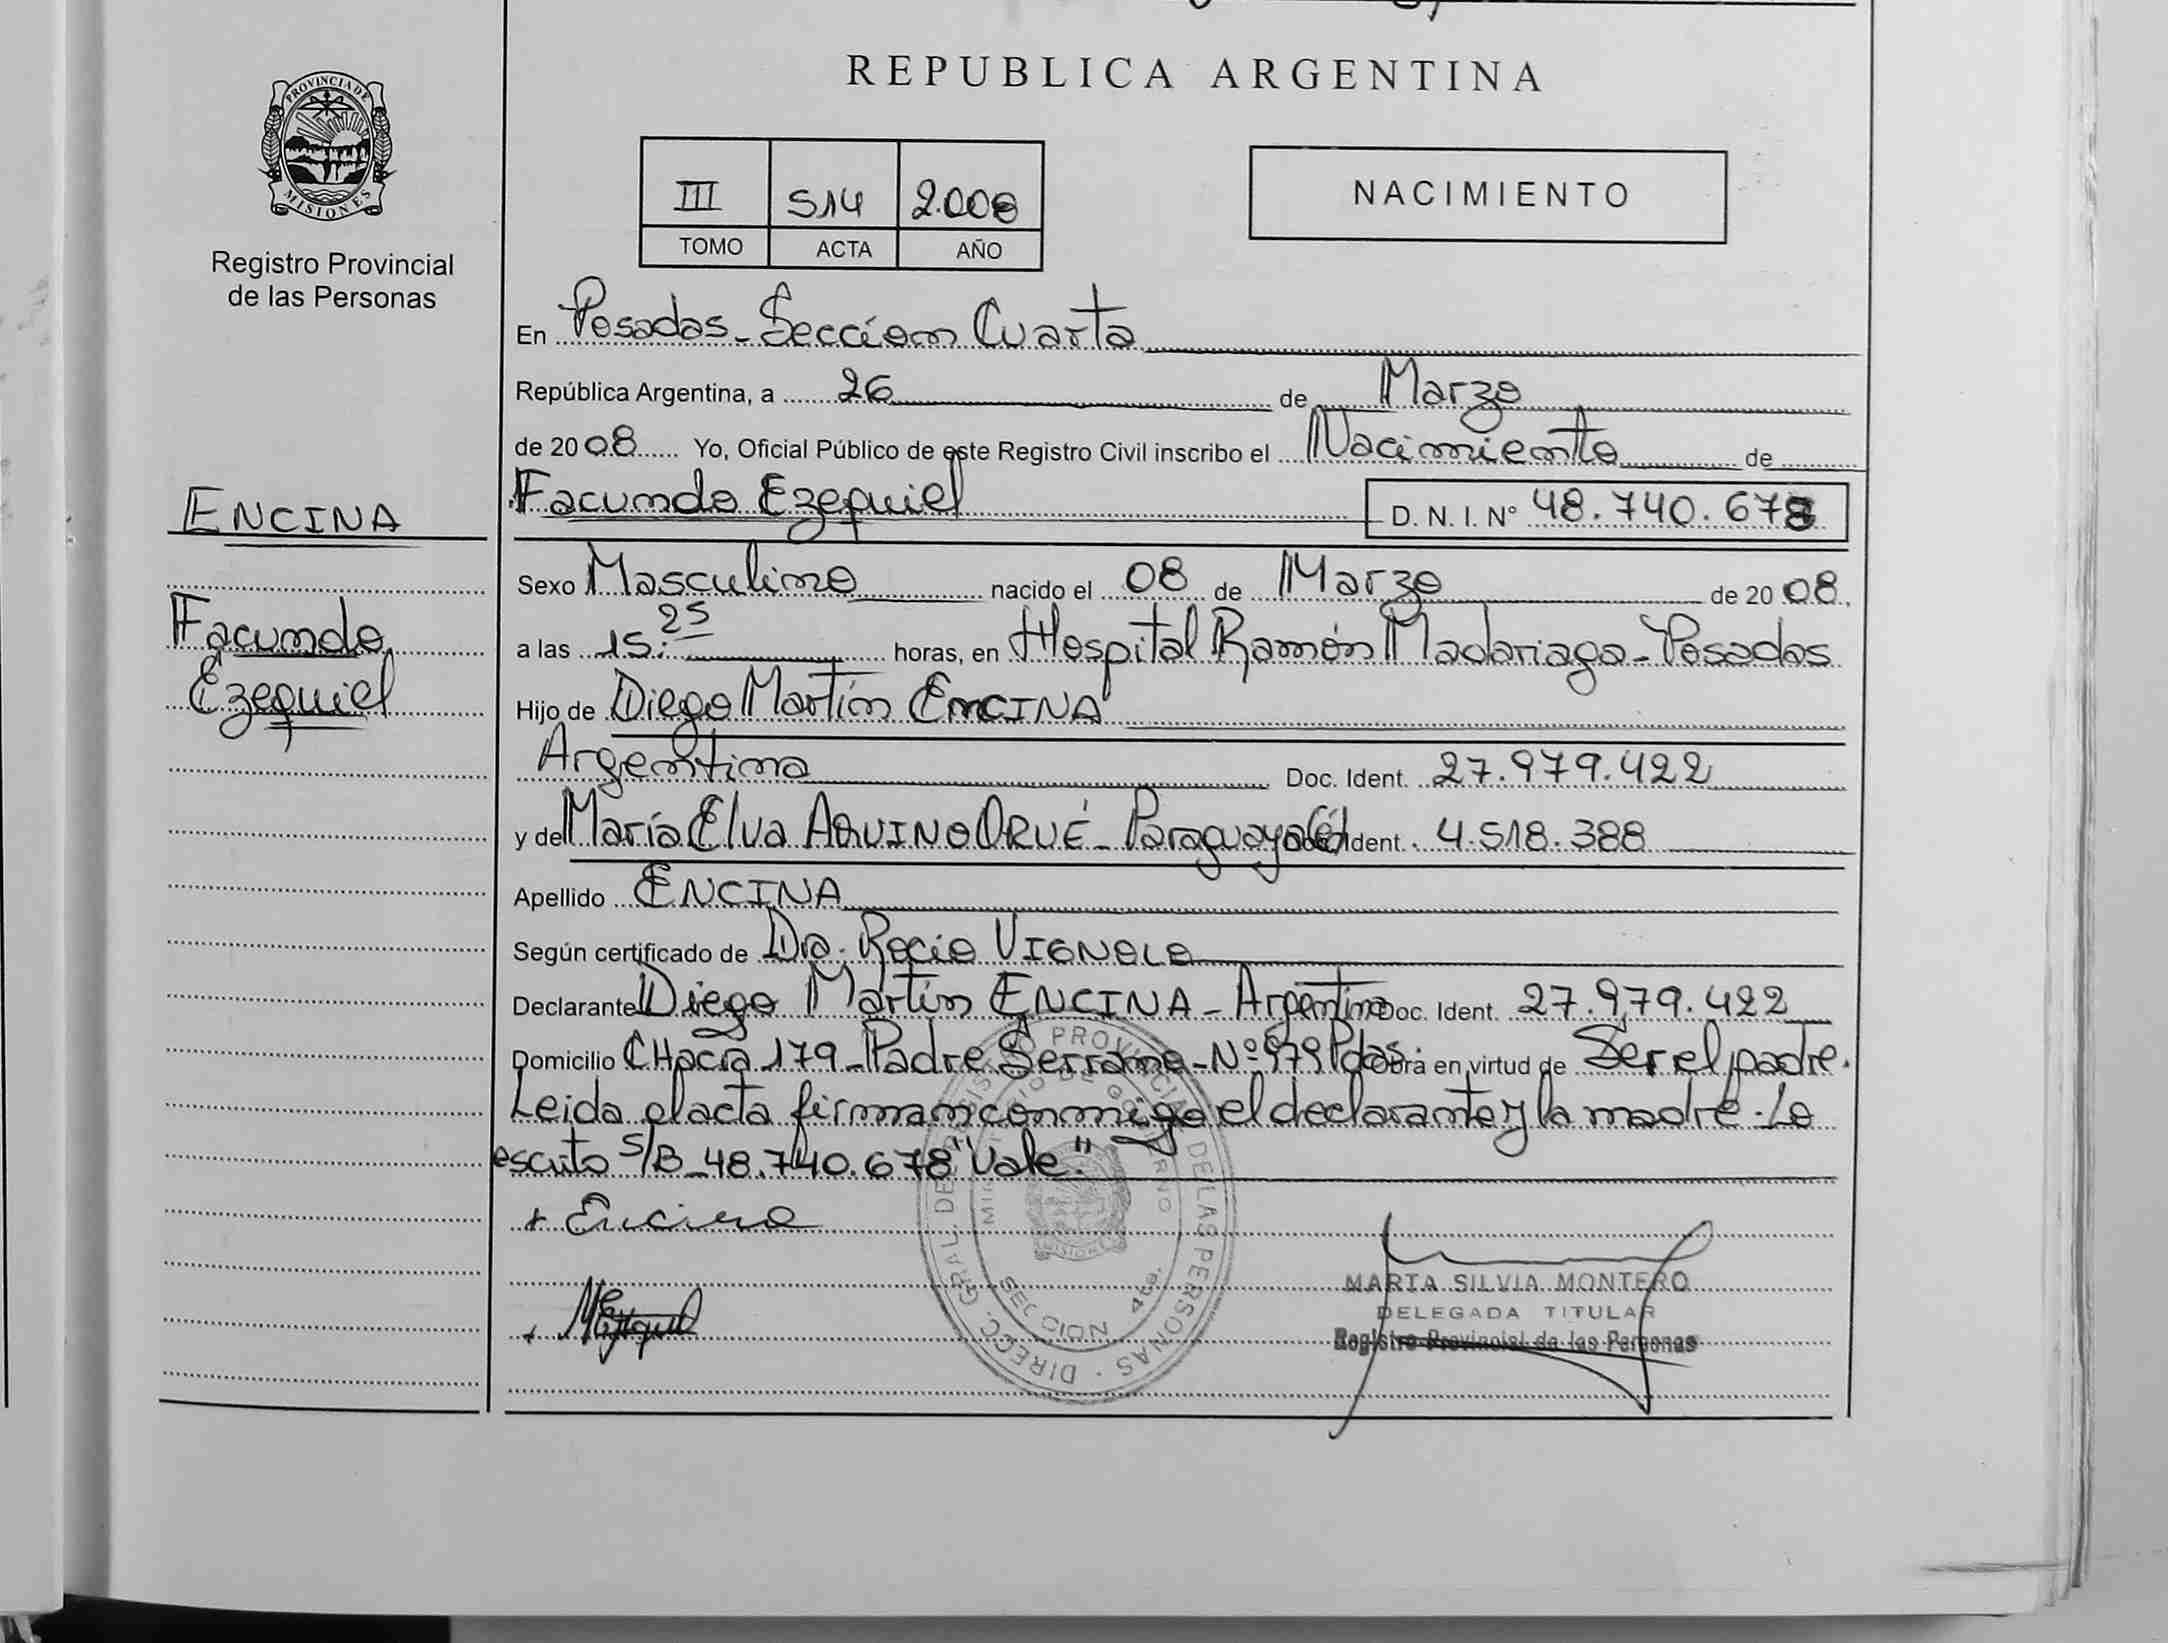 REPUBLICA ARGENTINA
PROVINCIA DE MISIONES
Registro Provincial
de las Personas
III 514 2.008
TOMO ACTA AÑO
NACIMIENTO
En Posadas - Sección Cuarta
República Argentina, a 26 de Marzo
de 20 08 Yo, Oficial Público de este Registro Civil inscribo el Nacimiento de
ENCINA
Facundo Ezequiel
Facundo Ezequiel D. N. I. N° 48.740.678
Sexo Masculino nacido el 08 de Marzo de 20 08
a las 15:25 horas, en Hospital Ramón Madariaga - Posadas
Hijo de Diego Martín ENCINA
Argentino Doc. Ident. 27.979.422
y de María Elva AQUINO ORUÉ - Paraguaya Ident. 4.518.388
Apellido ENCINA
Según certificado de Dra. Rocio VIGNOLO
Declarante Diego Martín ENCINA - Argentino Doc. Ident. 27.979.422
Domicilio CHacra 179 - Padre Serrano - Nº 979 Pdas. Obra en virtud de Ser el padre.
Leida el acta firman conmigo el declarante y la madre. Lo
escrito S/B - 48.740.678 "Vale."
Encina
MARTA SILVIA MONTERO
DELEGADA TITULAR
Registro Provincial de las Personas
DIRECC. GRAL. DE PROVINCIAL DE LAS PERSONAS
SECCION 4ta.